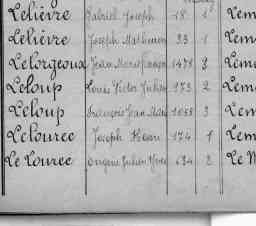 Lelièvre Gabriel Joseph 18 1 Lem
Lelièvre Joseph Mathurin 33 1 Lem
Lelorgeoux Jean Marie 1478 3 Lem
Leloup Louis Victor Julien 173 2 Lem
Leloup François Jean Marie 1038 3 Lem
Lelourec Joseph Henri 174 1 Lem
Le Lourec Eugène Julien Yves 434 2 Le M